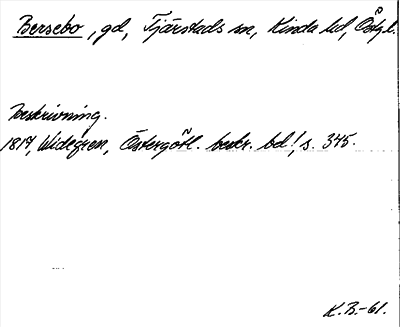 Bersebo, gd, Tjärstads sn, Kinda hd, Östgl.
Beskrivning.
1817, Widegren, Östergötl. beskr. bd 1, s. 345.
K.B.-61.